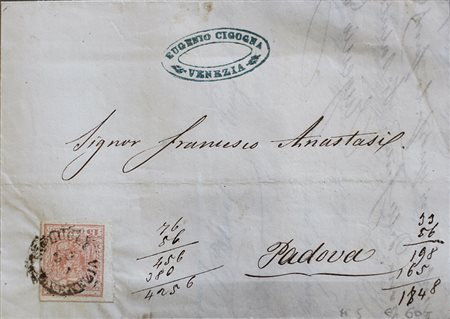 EUGENIO CIGOGNA
VENEZIA
Signor Francesco Anastasi
Padova
76
56
456
380
4256
33
56
198
165
1848